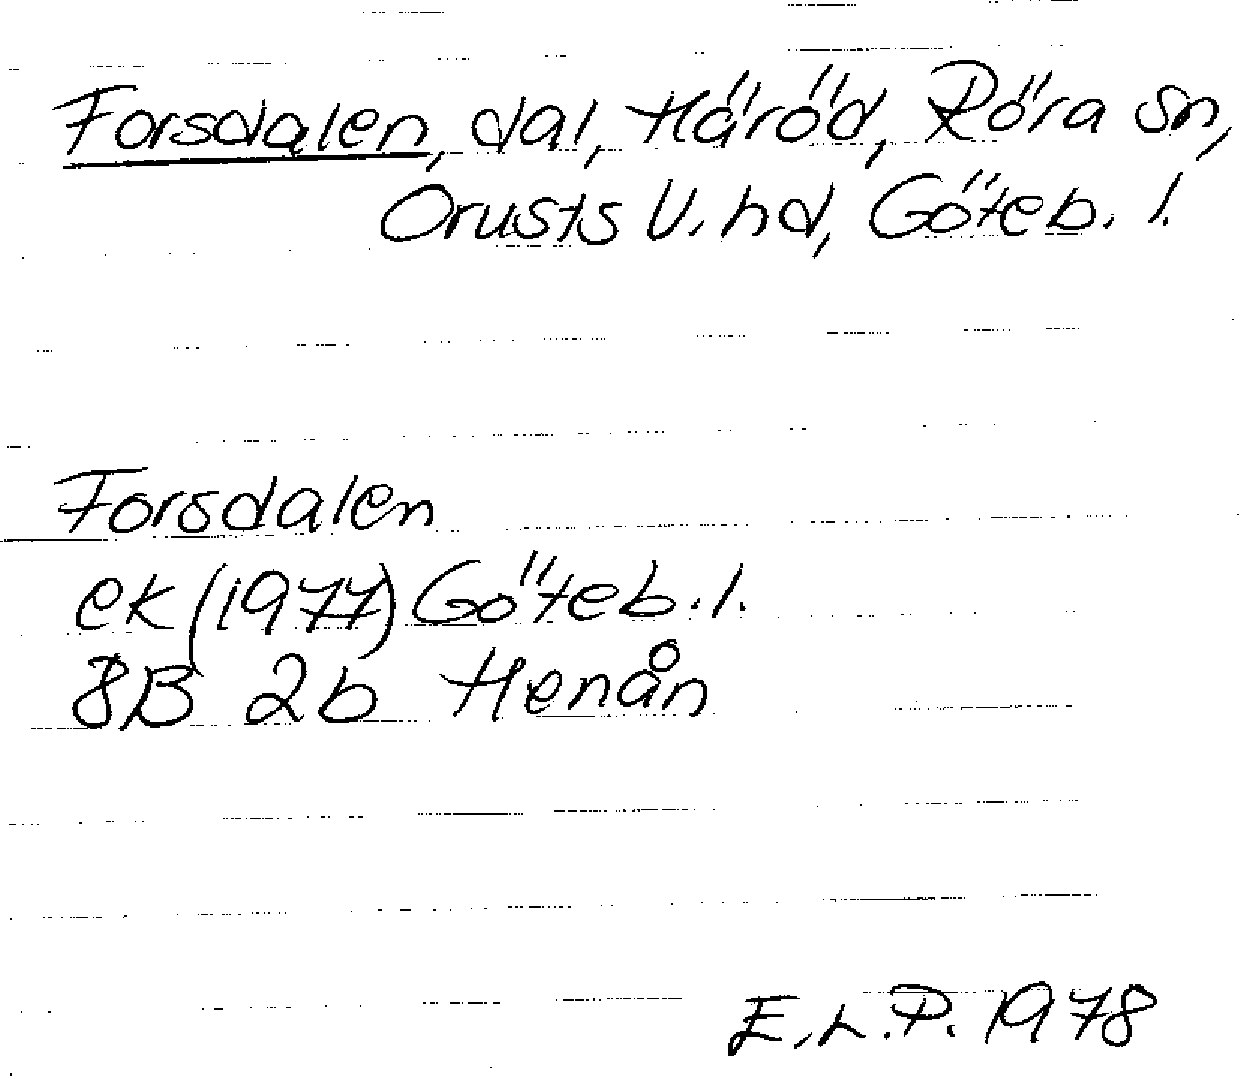 Forsdalen, dal, Häröd, Röra sn,
Orusts V. hd, Göteb. l.
Forsdalen
ek (1977) Göteb. l.
8B 2b Henån
E.L.P. 1978